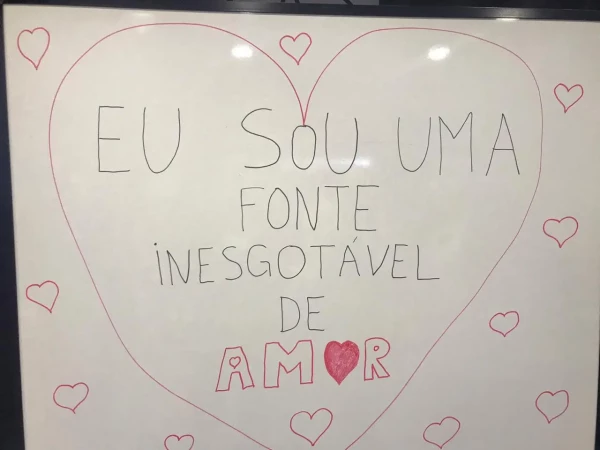 EU SOU UMA
FONTE
INESGOTÁVEL
DE
AMOR